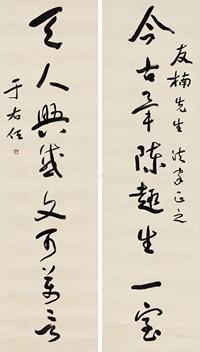 友楠先生法家正之
今古畢陳趣生一室
天人興感文可萬言
于右任